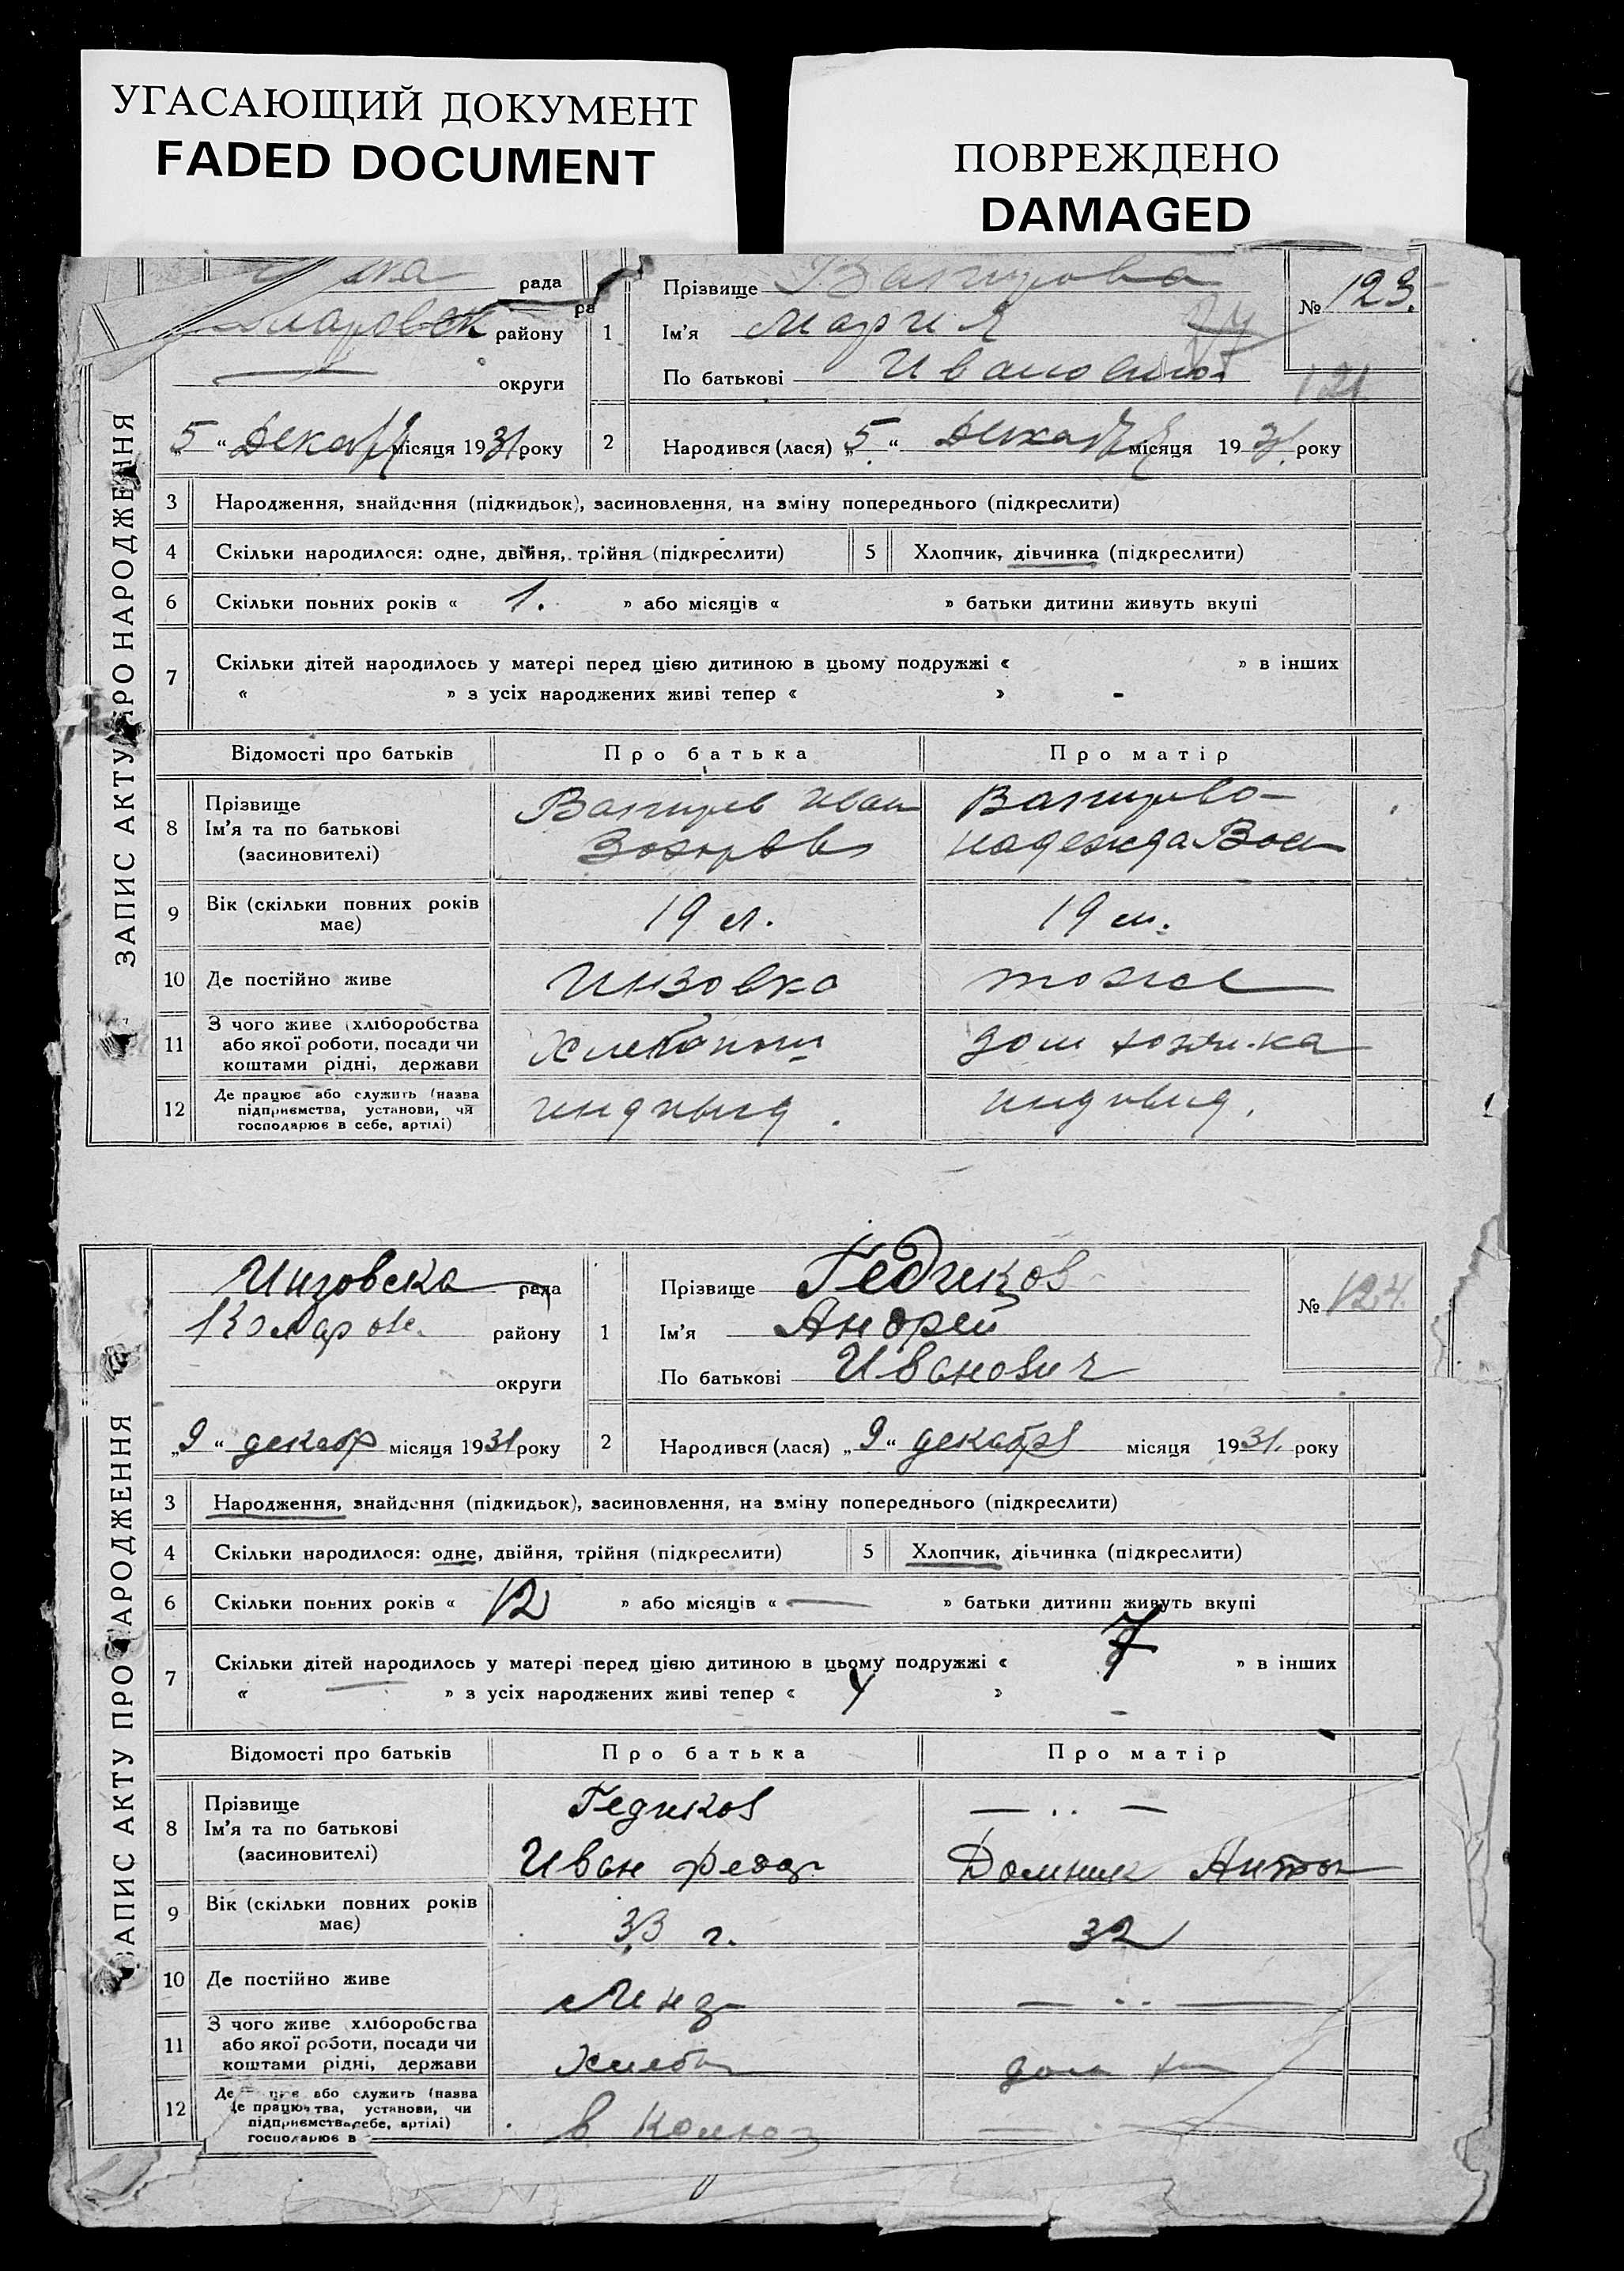 УГАСАЮЩИЙ ДОКУМЕНТ
FADED DOCUMENT
ПОВРЕЖДЕНО
DAMAGED
ЗАПИС АКТУ ПРО НАРОДЖЕННЯ
рада
району
округи
5 “ Декабря місяця 1931 року
1
Прізвище
Ім’я Мария
По батькові Ивановна
№ 123.
121
2
Народився (лася) „5“ Декабря місяця 1931 року
3 Народження, знайдення (підкидьок), засиновлення, на зміну попереднього (підкреслити)
4 Скільки народилося: одне, двійня, трійня (підкреслити)
5 Хлопчик, дівчинка (підкреслити)
6 Скільки повних років « 1. » або місяців « » батьки дитини живуть вкупі
7 Скільки дітей народилось у матері перед цією дитиною в цьому подружжі « » в інших
« » з усіх народжених живі тепер « »
Відомості про батьків Про батька Про матір
8 Прізвище
Ім’я та по батькові
(засиновителі)
Иван
надежда
9 Вік (скільки повних років має) 19 л. 19 л.
10 Де постійно живе Инзовка тоже
11 З чого живе (хліборобства або якої роботи, посади чи коштами рідні, держави дом хозяйка
12 Де працює або служить (назва підприємства, установи, чи господарює в себе, артілі) индивид. индивид.
ЗАПИС АКТУ ПРО НАРОДЖЕННЯ
Инзовска рада
Коларов. району
округи
„9“ декабр місяця 1931 року
1
Прізвище Гедиков
Ім’я Андрей
По батькові Иванович
№ 124.
2
Народився (лася) „9“ декабря місяця 1931. року
3 Народження, знайдення (підкидьок), засиновлення, на зміну попереднього (підкреслити)
4 Скільки народилося: одне, двійня, трійня (підкреслити)
5 Хлопчик, дівчинка (підкреслити)
6 Скільки повних років « 12 » або місяців « — » батьки дитини живуть вкупі
7 Скільки дітей народилось у матері перед цією дитиною в цьому подружжі « 7 » в інших
« — » з усіх народжених живі тепер « 4 »
Відомості про батьків Про батька Про матір
8 Прізвище
Ім’я та по батькові
(засиновителі)
Гедиков — .. —
Иван Федор. Домник Антон
9 Вік (скільки повних років має) 33 г. 32
10 Де постійно живе Инз — .. —
11 З чого живе хліборобства або якої роботи, посади чи коштами рідні, держави Хлеб дом х
12 в Колхоз